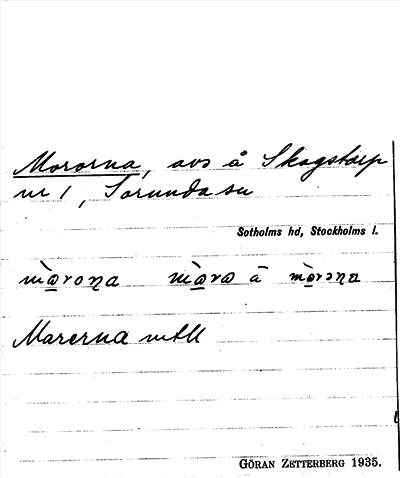 Mororna, avs å Skogstorp
nr 1, Sorunda sn
Sotholms hd, Stockholms l.
mòroṇa mòra ā mòrəṇa
Marerna mtll
GÖRAN ZETTERBERG 1935.